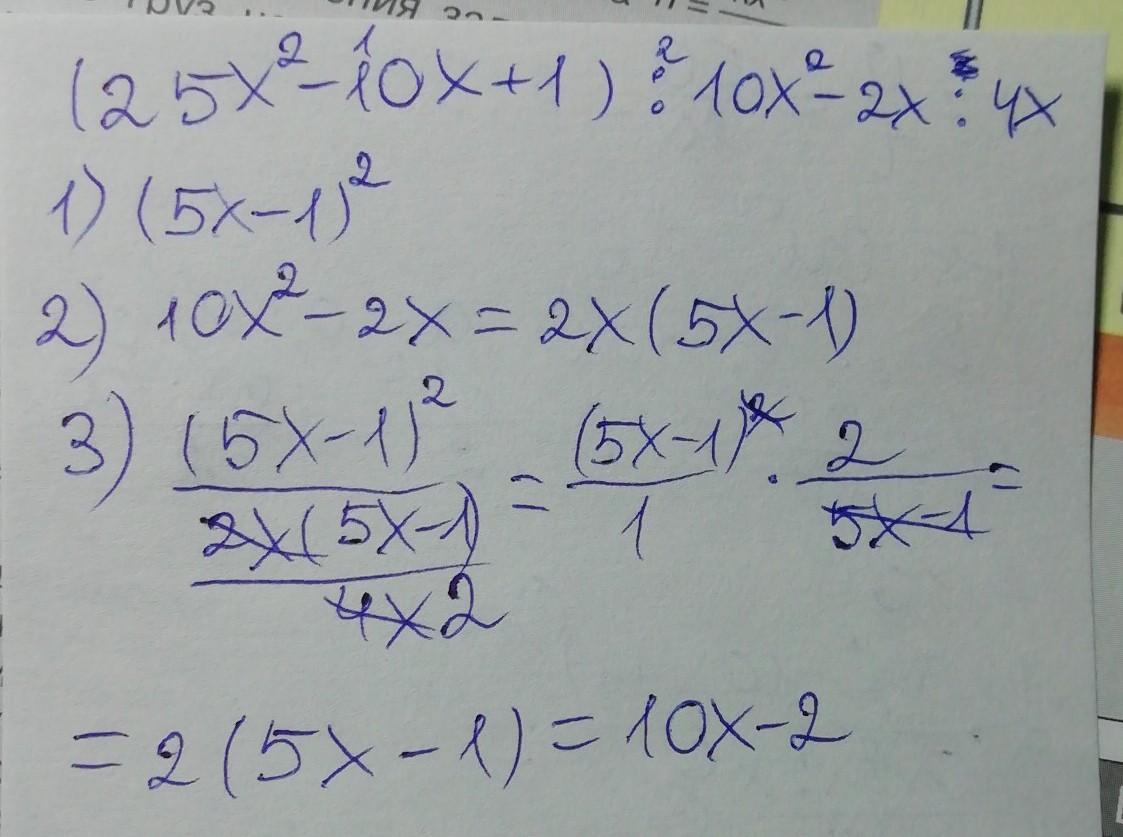 груз ния за
(25x² - 10x + 1) : 10x² - 2x : 4x
1 2
1) (5x - 1)²
2) 10x² - 2x = 2x(5x - 1)
3) (5x - 1)² / (2x(5x - 1) / 4x 2) = (5x - 1)² / 1 · 2 / (5x - 1) =
= 2(5x - 1) = 10x - 2